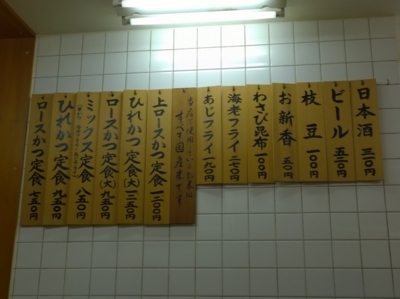 日本酒 三一〇円
ビール 五二〇円
枝豆 一〇〇円
お新香 五〇円
わさび昆布 一〇〇円
海老フライ 二七〇円
あじフライ 一九〇円
当店で使用しているお米は
すべて国産米です
上ロースかつ定食 一二〇〇円
ひれかつ定食(大) 一二五〇円
ロースかつ定食(大) 九五〇円
ミックス定食 八五〇円
ひれかつ定食 九五〇円
ロースかつ定食 七五〇円